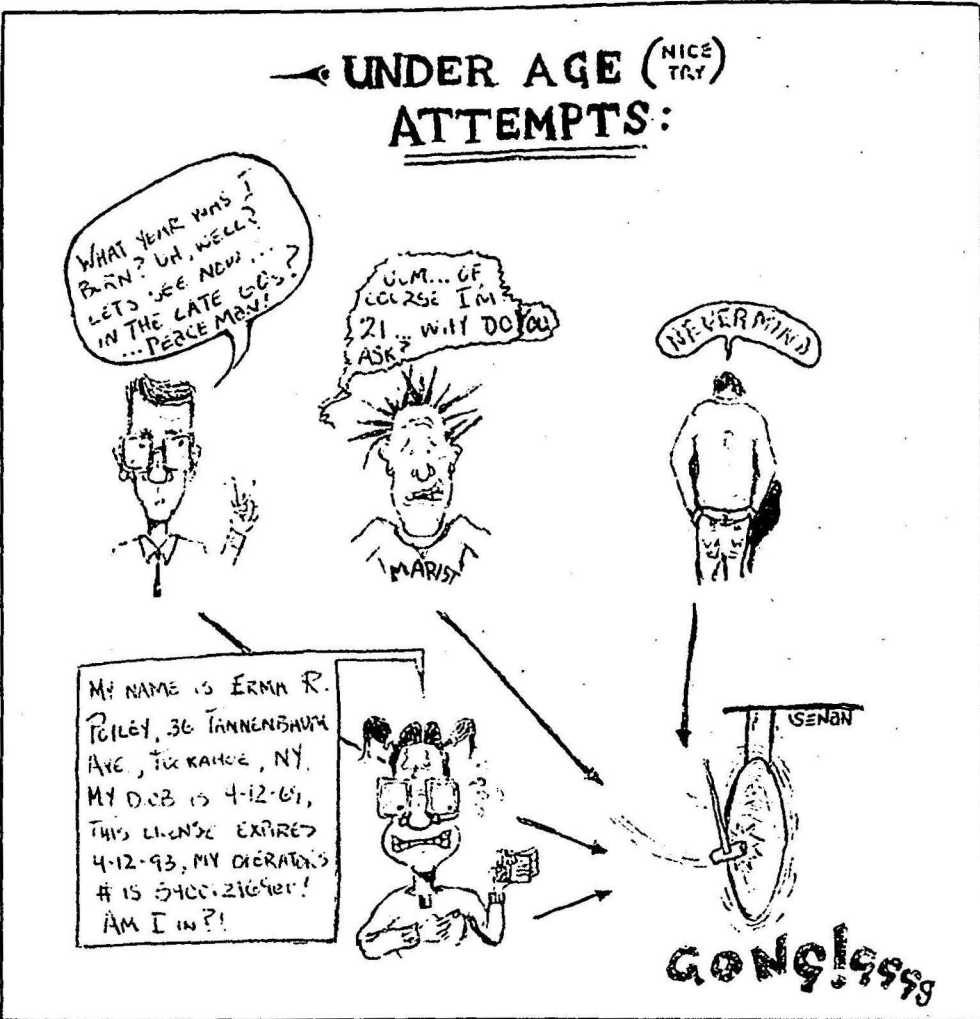 UNDER AGE (NICE TRY)
ATTEMPTS:
WHAT YEAR WAS I
BORN? UH, WELL?
LETS SEE NOW...
IN THE LATE 60S?
... PEACE MAN!
UM... OF
COURSE I'M
21... WHY DO YOU
ASK?
NEVERMIND
MARIST
MY NAME IS ERMA R.
AVE., TUCKAHOE, NY.
MY D.O.B IS 4-12-69,
THIS LICENSE EXPIRES
4-12-93, MY OPERATORS
# IS
AM I IN?!
SENAN
GONG!GGGG